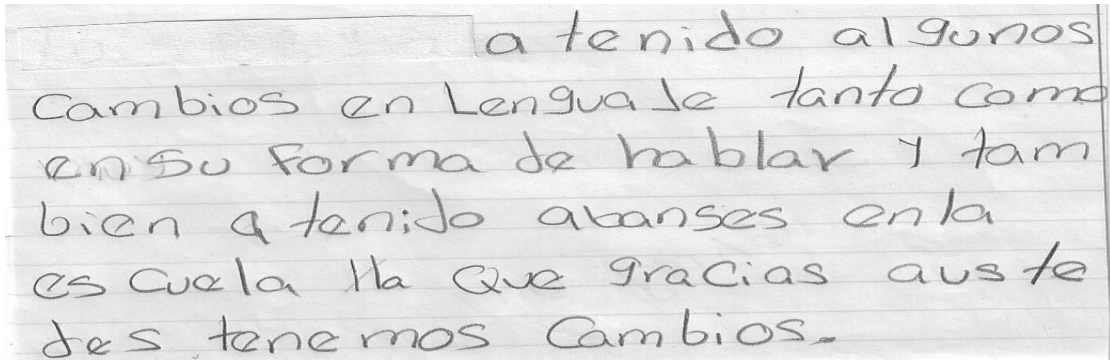 a tenido algunos
Cambios en Lenguaje tanto como
en su Forma de hablar y tam
bien a tenido abanses en la
es cuela lla Que gracias auste
des tenemos Cambios.